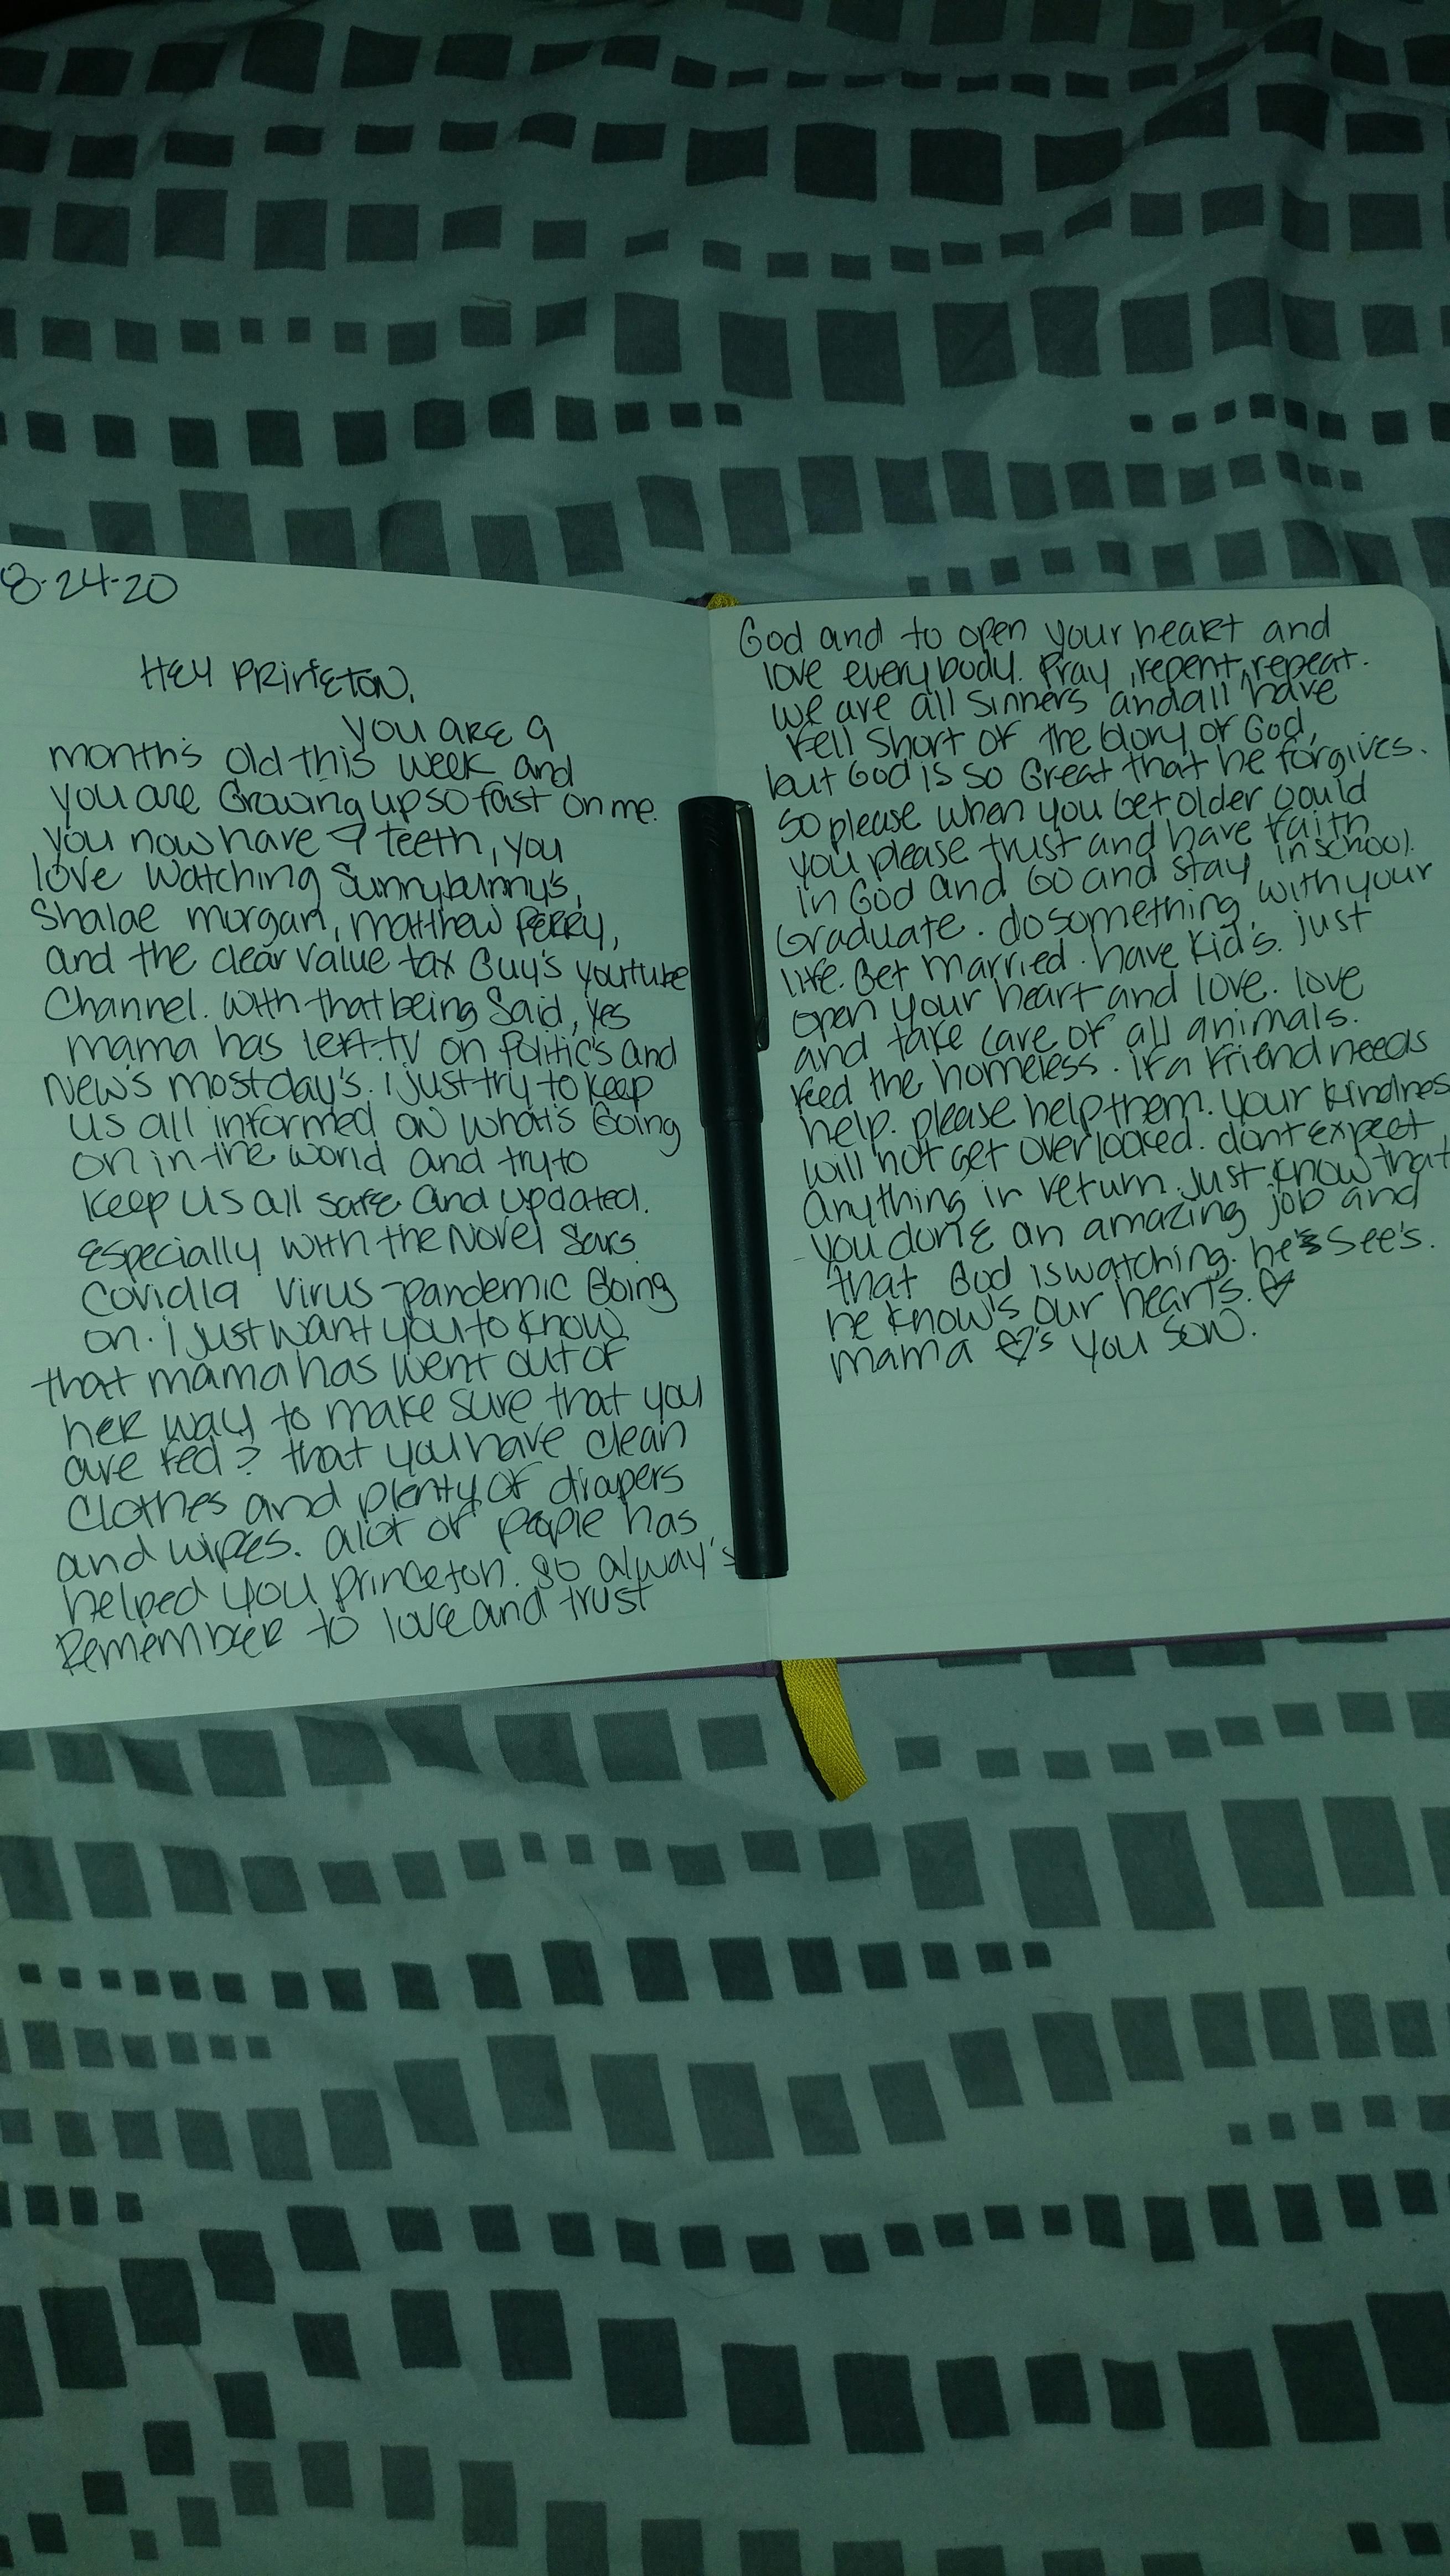 8-24-20
Hey Princeton,
you are 9
month's old this week and
you are Growing up so fast on me.
you now have 7 teeth, you
love watching Sunnybunny's,
Shalae morgan, matthew Perry,
and the clear value tax Guy's youtube
Channel. With that being Said, yes
mama has left tv on Politic's and
New's most day's. i just try to keep
us all informed on what's Going
on in the world and try to
keep us all safe and updated.
especially with the Novel Sars
Covid19 Virus pandemic Going
on. i just want you to know
that mama has went out of
her way to make sure that you
are fed? that you have clean
Clothes and plenty of diapers
and wipes. alot of people has
helped you princeton. so alway's
Remember to love and trust
God and to open your heart and
love everybody. Pray, repent, repeat.
we are all sinners and all have
fell short of the Glory of God,
but God is so Great that he forgives.
So please when you Get older could
you please trust and have faith
in God and Go and stay in school.
Graduate. do something with your
life. Get married. have kid's. just
open your heart and love. love
and take care of all animals.
feed the homeless. if a friend needs
help. please help them. your kindness
will not get overlooked. dont expect
anything in return. just know that
you done an amazing job and
that God is watching. he see's.
he know's our heart's. ♡
mama ♡'s you son.